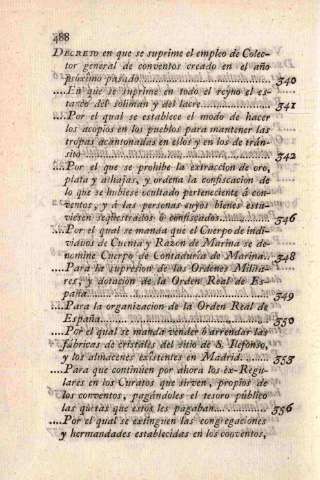 488
DECRETO en que se suprime el empleo de Colec-
tor general de conventos creado en el año
próximo pasado ............ 340
....En que se suprime en todo el reyno el es-
tanco del soliman y del lacre ............ 341
....Por el qual se establece el modo de hacer
los acopios en los pueblos para mantener las
tropas acantonadas en ellos y en los de trán-
sito ............ 342
....Por el que se prohibe la extraccion de oro,
plata y alhajas, y ordena la confiscacion de
lo que se hubiese ocultado perteneciente á con-
ventos, y á las personas cuyos bienes estu-
viesen seqüestrados ó confiscados ............ 346
....Por el qual se manda que el Cuerpo de indi-
viduos de Cuenta y Razon de Marina se de-
nomine Cuerpo de Contaduría de Marina.. 348
....Para la supresion de las Ordenes Milita-
res, y dotacion de la Orden Real de Es-
paña ............ 349
....Para la organizacion de la Orden Real de
España ............ 350
....Por el qual se manda vender ó arrendar las
fábricas de cristales del sitio de S. Ildefonso,
y los almacenes exîstentes en Madrid. ...... 353
....Para que continúen por ahora los ex-Regu-
lares en los Curatos que sirven, propios de
los conventos, pagándoles el tesoro público
las quotas que estos les pagaban ............ 356
....Por el qual se extinguen las congregaciones
y hermandades establecidas en los conventos,